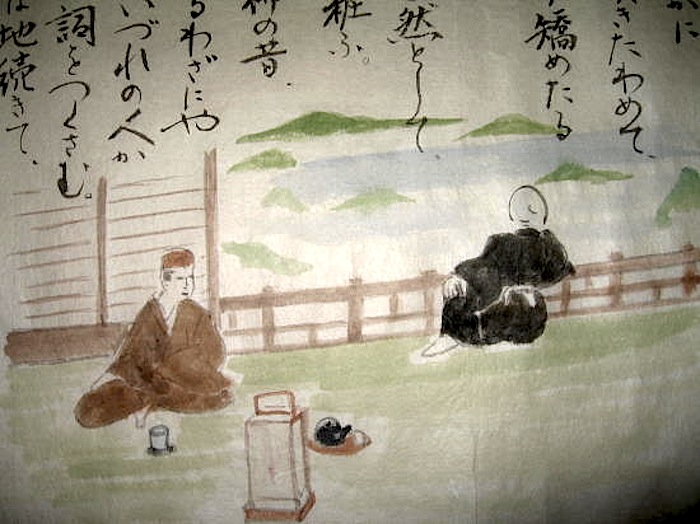 かに
きたわめて、
矯めたる
然として、
粧ふ。
神の昔、
るわざにや
いづれの人か
詞をつくさむ。
は地続きて、